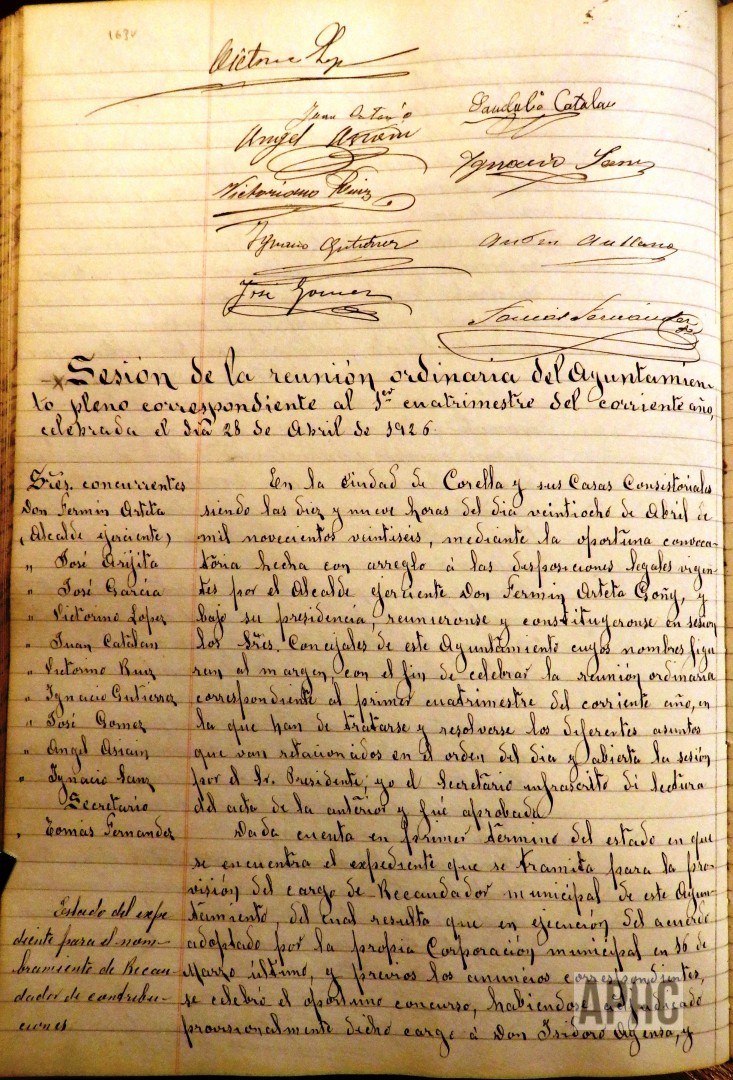 1630
Victorino Lop
Juan Antonio
Sandalio Catalan
Angel Asiain
Ignacio Sanz
Victoriano Ruiz
Ignacio Gutierrez
Antón Arellano
José Gomez
Tomás Fernández
Sesión de la reunión ordinaria del Ayuntamien-
to pleno correspondiente al 1er cuatrimestre del corriente año,
celebrada el dia 28 de Abril de 1926.
Sres. concurrentes
Don Fermin Arteta
(Alcalde ejerciente)
" José Arijita
" José Garcia
" Victorino Lopez
" Juan Catalan
" Victorino Ruiz
" Ignacio Gutierrez
" José Gomez
" Angel Asiain
" Ignacio Sanz
Secretario
" Tomás Fernandez
En la Ciudad de Corella y sus Casas Consistoriales
siendo las diez y nueve horas del dia veintiocho de Abril de
mil novecientos veintiseis, mediante la oportuna convoca-
toria hecha con arreglo á las disposiciones legales vigen-
tes por el Alcalde ejerciente Don Fermin Arteta Goñy, y
bajo su presidencia, reunieronse y constituyeronse en sesion
los Sres. Concejales de este Ayuntamiento cuyos nombres figu-
ran al margen, con el fin de celebrar la reunión ordinaria
correspondiente al primer cuatrimestre del corriente año, en
la que han de tratarse y resolverse los diferentes asuntos
que van relacionados en el orden del dia y abierta la sesión
por el Sr. Presidente; yo el Secretario infrascrito di lectura
del acta de la anterior y fué aprobada.
Dada cuenta en primer término del estado en que
se encuentra el expediente que se tramita para la pro-
visión del cargo de Recaudador municipal de este Ayun-
tamiento, del cual resulta que en ejecución del acuerdo
adoptado por la propia Corporación municipal en 16 de
Marzo último, y previos los anuncios correspondientes,
se celebró el oportuno concurso, habiendose adjudicado
provisionalmente dicho cargo á Don Isidoro Ayensa, y
Estado del expe-
diente para el nom-
bramiento de Recau-
dador de contribu-
ciones
APHC